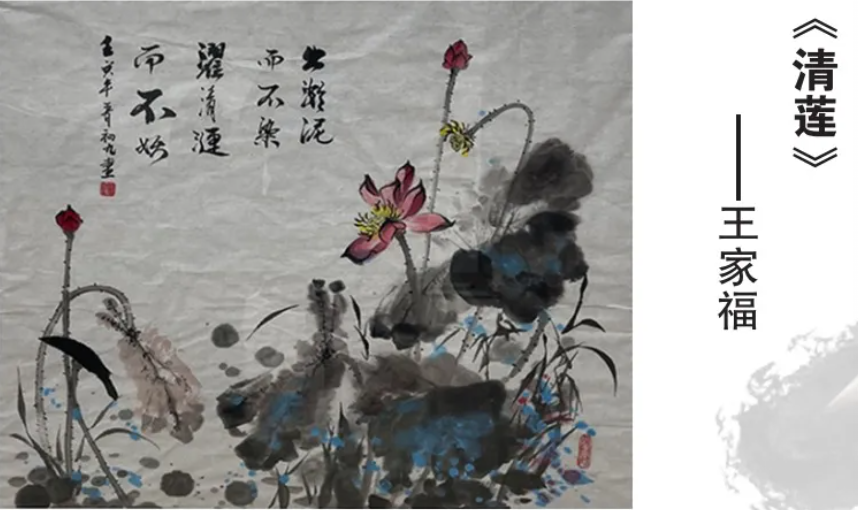 《清莲》
——王家福
出淤泥
而不染
濯清涟
而不妖
壬寅年初九画